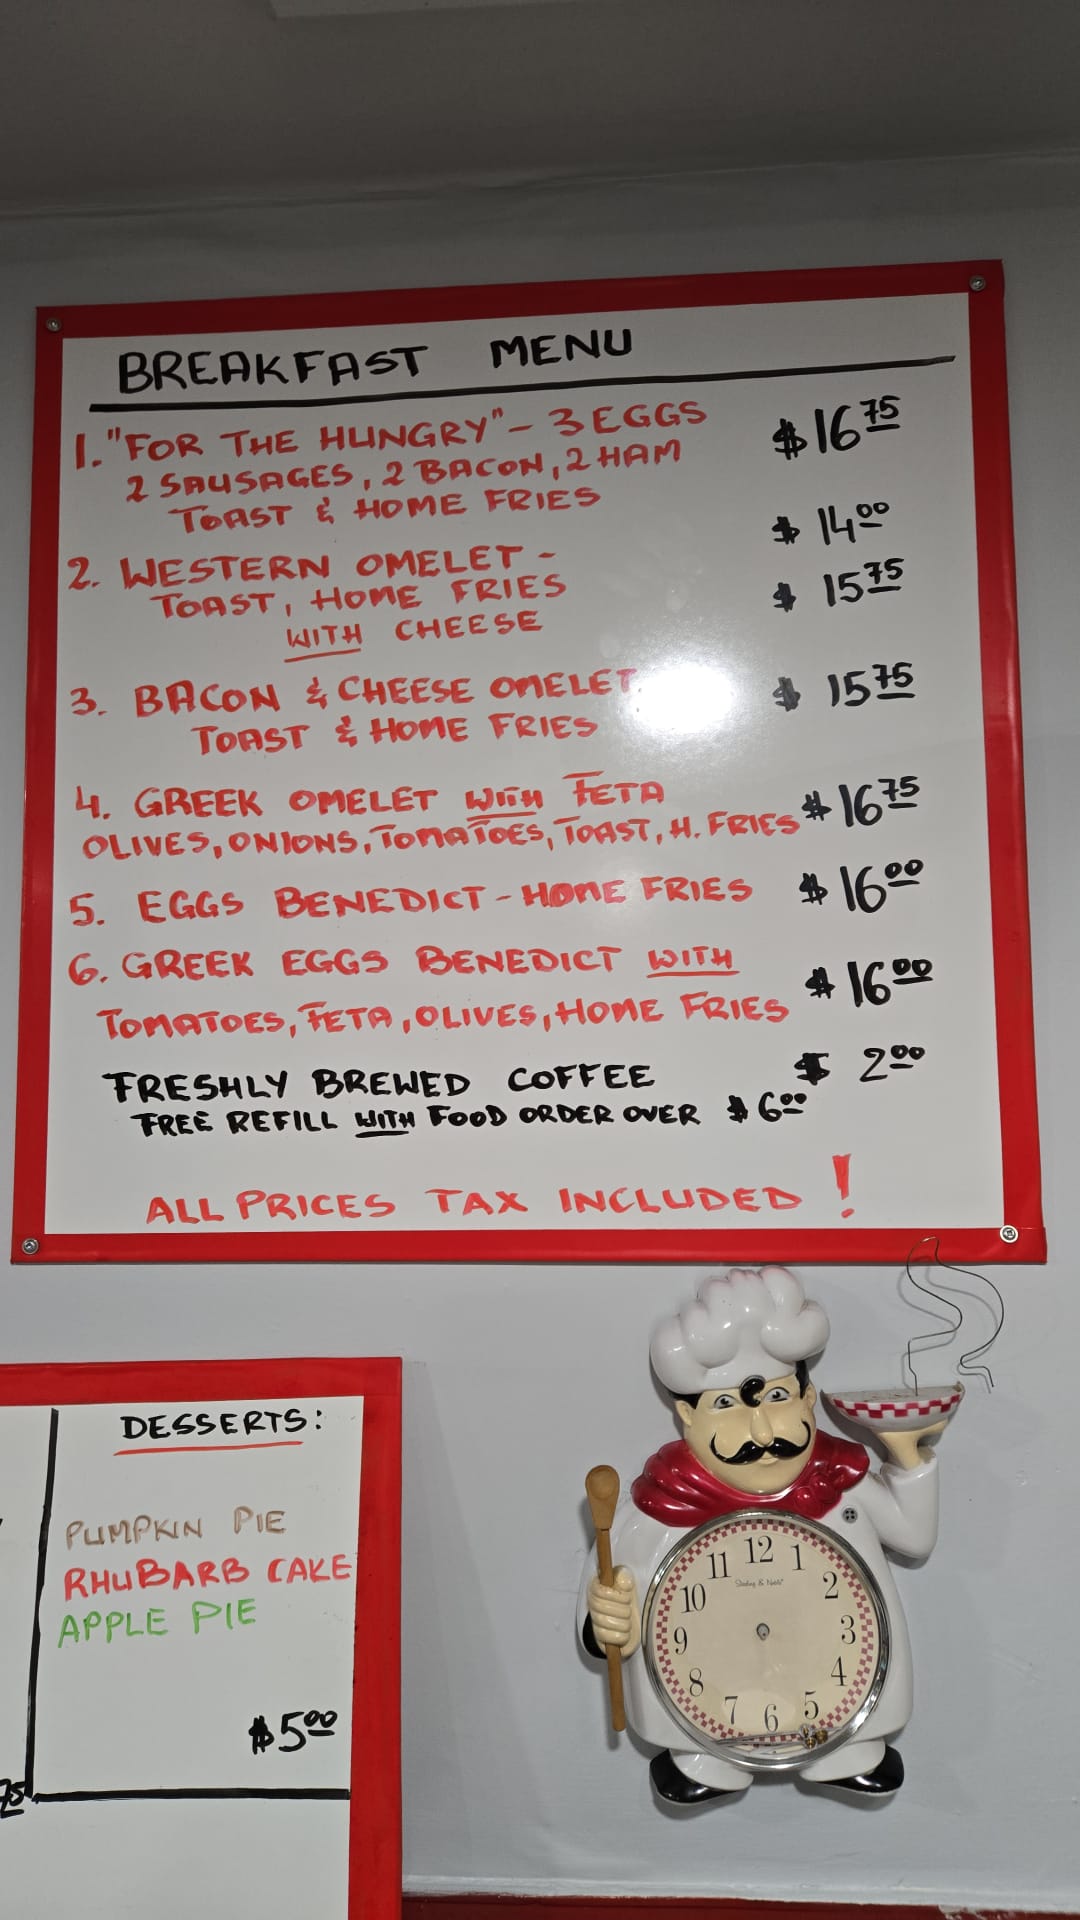 BREAKFAST MENU
1. "FOR THE HUNGRY" - 3 EGGS $16 75
2 SAUSAGES, 2 BACON, 2 HAM
TOAST & HOME FRIES
2. WESTERN OMELET - $ 14 00
TOAST, HOME FRIES
WITH CHEESE $ 15 75
3. BACON & CHEESE OMELET $ 15 75
TOAST & HOME FRIES
4. GREEK OMELET WITH FETA $ 16 75
OLIVES, ONIONS, TOMATOES, TOAST, H. FRIES
5. EGGS BENEDICT - HOME FRIES $ 16 00
6. GREEK EGGS BENEDICT WITH $ 16 00
TOMATOES, FETA, OLIVES, HOME FRIES
FRESHLY BREWED COFFEE $ 2 00
FREE REFILL WITH FOOD ORDER OVER $ 6 00
ALL PRICES TAX INCLUDED !
DESSERTS:
PUMPKIN PIE
RHUBARB CAKE
APPLE PIE
$5 00
75
12
11 1
10 2
9 3
8 4
7 6 5